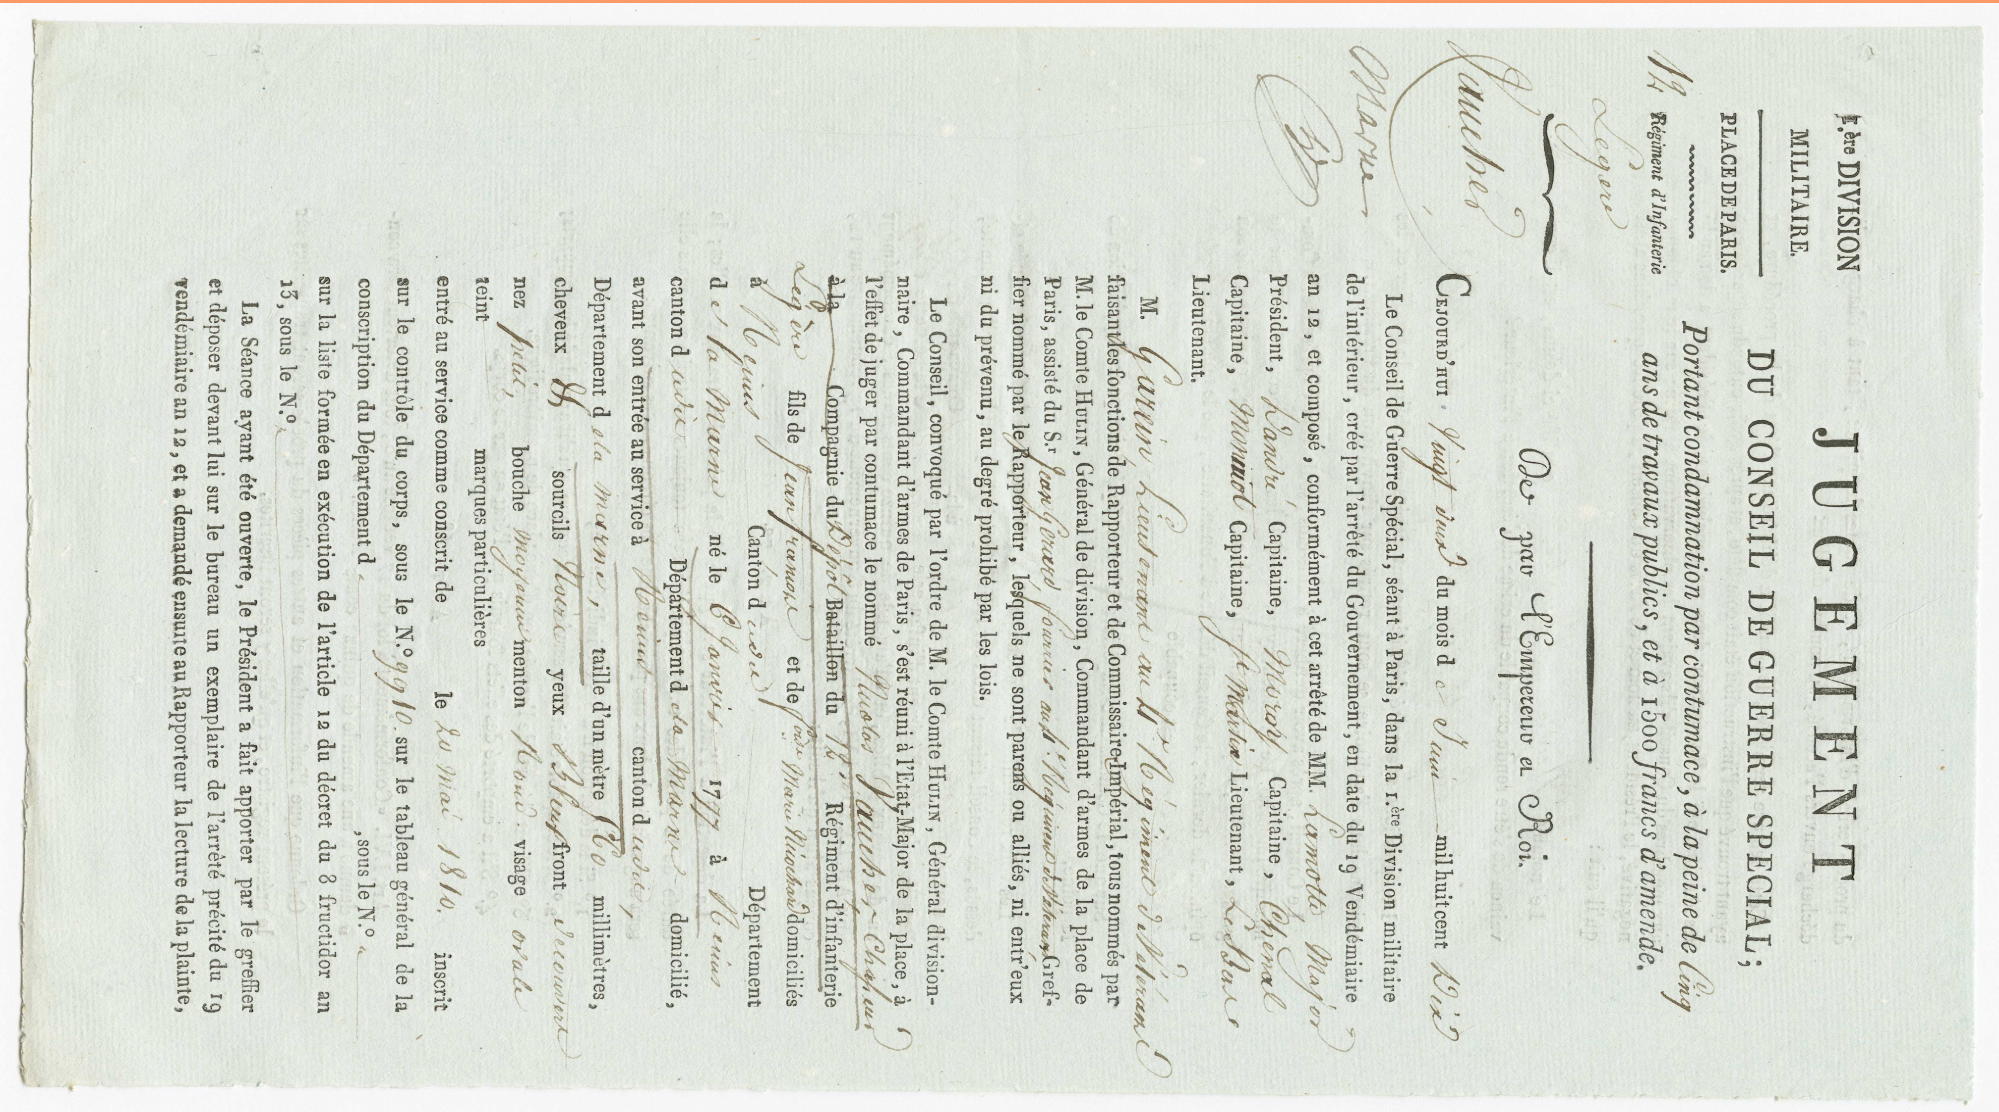 1.ère DIVISION
MILITAIRE.
PLACE DE PARIS.
12 Régiment d'Infanterie
Légère
Vaucher
Marne
JUGEMENT
DU CONSEIL DE GUERRE SPECIAL;
Portant condamnation par contumace, à la peine de Cinq
ans de travaux publics, et à 1500 francs d'amende.
De par l'Empereur et Roi.
CEJOURD'HUI Vingt deux du mois de Juin mil huit cent Dix
Le Conseil de Guerre Spécial, séant à Paris, dans la 1.ère Division militaire
de l'intérieur, créé par l'arrêté du Gouvernement, en date du 19 Vendémiaire
an 12, et composé, conformément à cet arrêté de MM. Lamotte Major
Président, Landré Capitaine, Morory Capitaine, Chenal
Capitaine, Moriot Capitaine, St Martin Lieutenant, LeBeuse
Lieutenant.
M. Garrin, Lieutenant au 4e Régiment de Vétérans
faisant les fonctions de Rapporteur et de Commissaire-Impérial, tous nommés par
M. le Comte HULIN, Général de division, Commandant d'armes de la place de
Paris, assisté du S.r Jean Gerard, fourrier au Régiment de Vétérans Gref-
fier nommé par le Rapporteur, lesquels ne sont parens ou alliés, ni entr'eux
ni du prévenu, au degré prohibé par les lois.
Le Conseil, convoqué par l'ordre de M. le Comte HULIN, Général division-
naire, Commandant d'armes de Paris, s'est réuni à l'Etat-Major de la place, à
l'effet de juger par contumace le nommé Nicolas Vaucher, Chasseur
à la Compagnie du Dépôt Bataillon du 12e Régiment d'infanterie
Légère fils de Jean françois et de Marie Richard domiciliés
à Reims Canton dudit Département
de la Marne né le 8 Janvier 1777 à Reims
canton dudit Département de la Marne domicilié,
avant son entrée au service à Reims canton dudit
Département de la marne, taille d'un mètre 60 millimètres,
cheveux et sourcils Noirs yeux Bleus front decouvert
nez petit, bouche moyenne menton Rond visage ovale
teint marques particulières
entré au service comme conscrit de le 20 mai 1810. inscrit
sur le contrôle du corps, sous le N.º 9910. sur le tableau général de la
conscription du Département d , sous le N.º
sur la liste formée en exécution de l'article 12 du décret du 8 fructidor an
13, sous le N.º
La Séance ayant été ouverte, le Président a fait apporter par le greffier
et déposer devant lui sur le bureau un exemplaire de l'arrêté précité du 19
vendémiaire an 12, et a demandé ensuite au Rapporteur la lecture de la plainte,